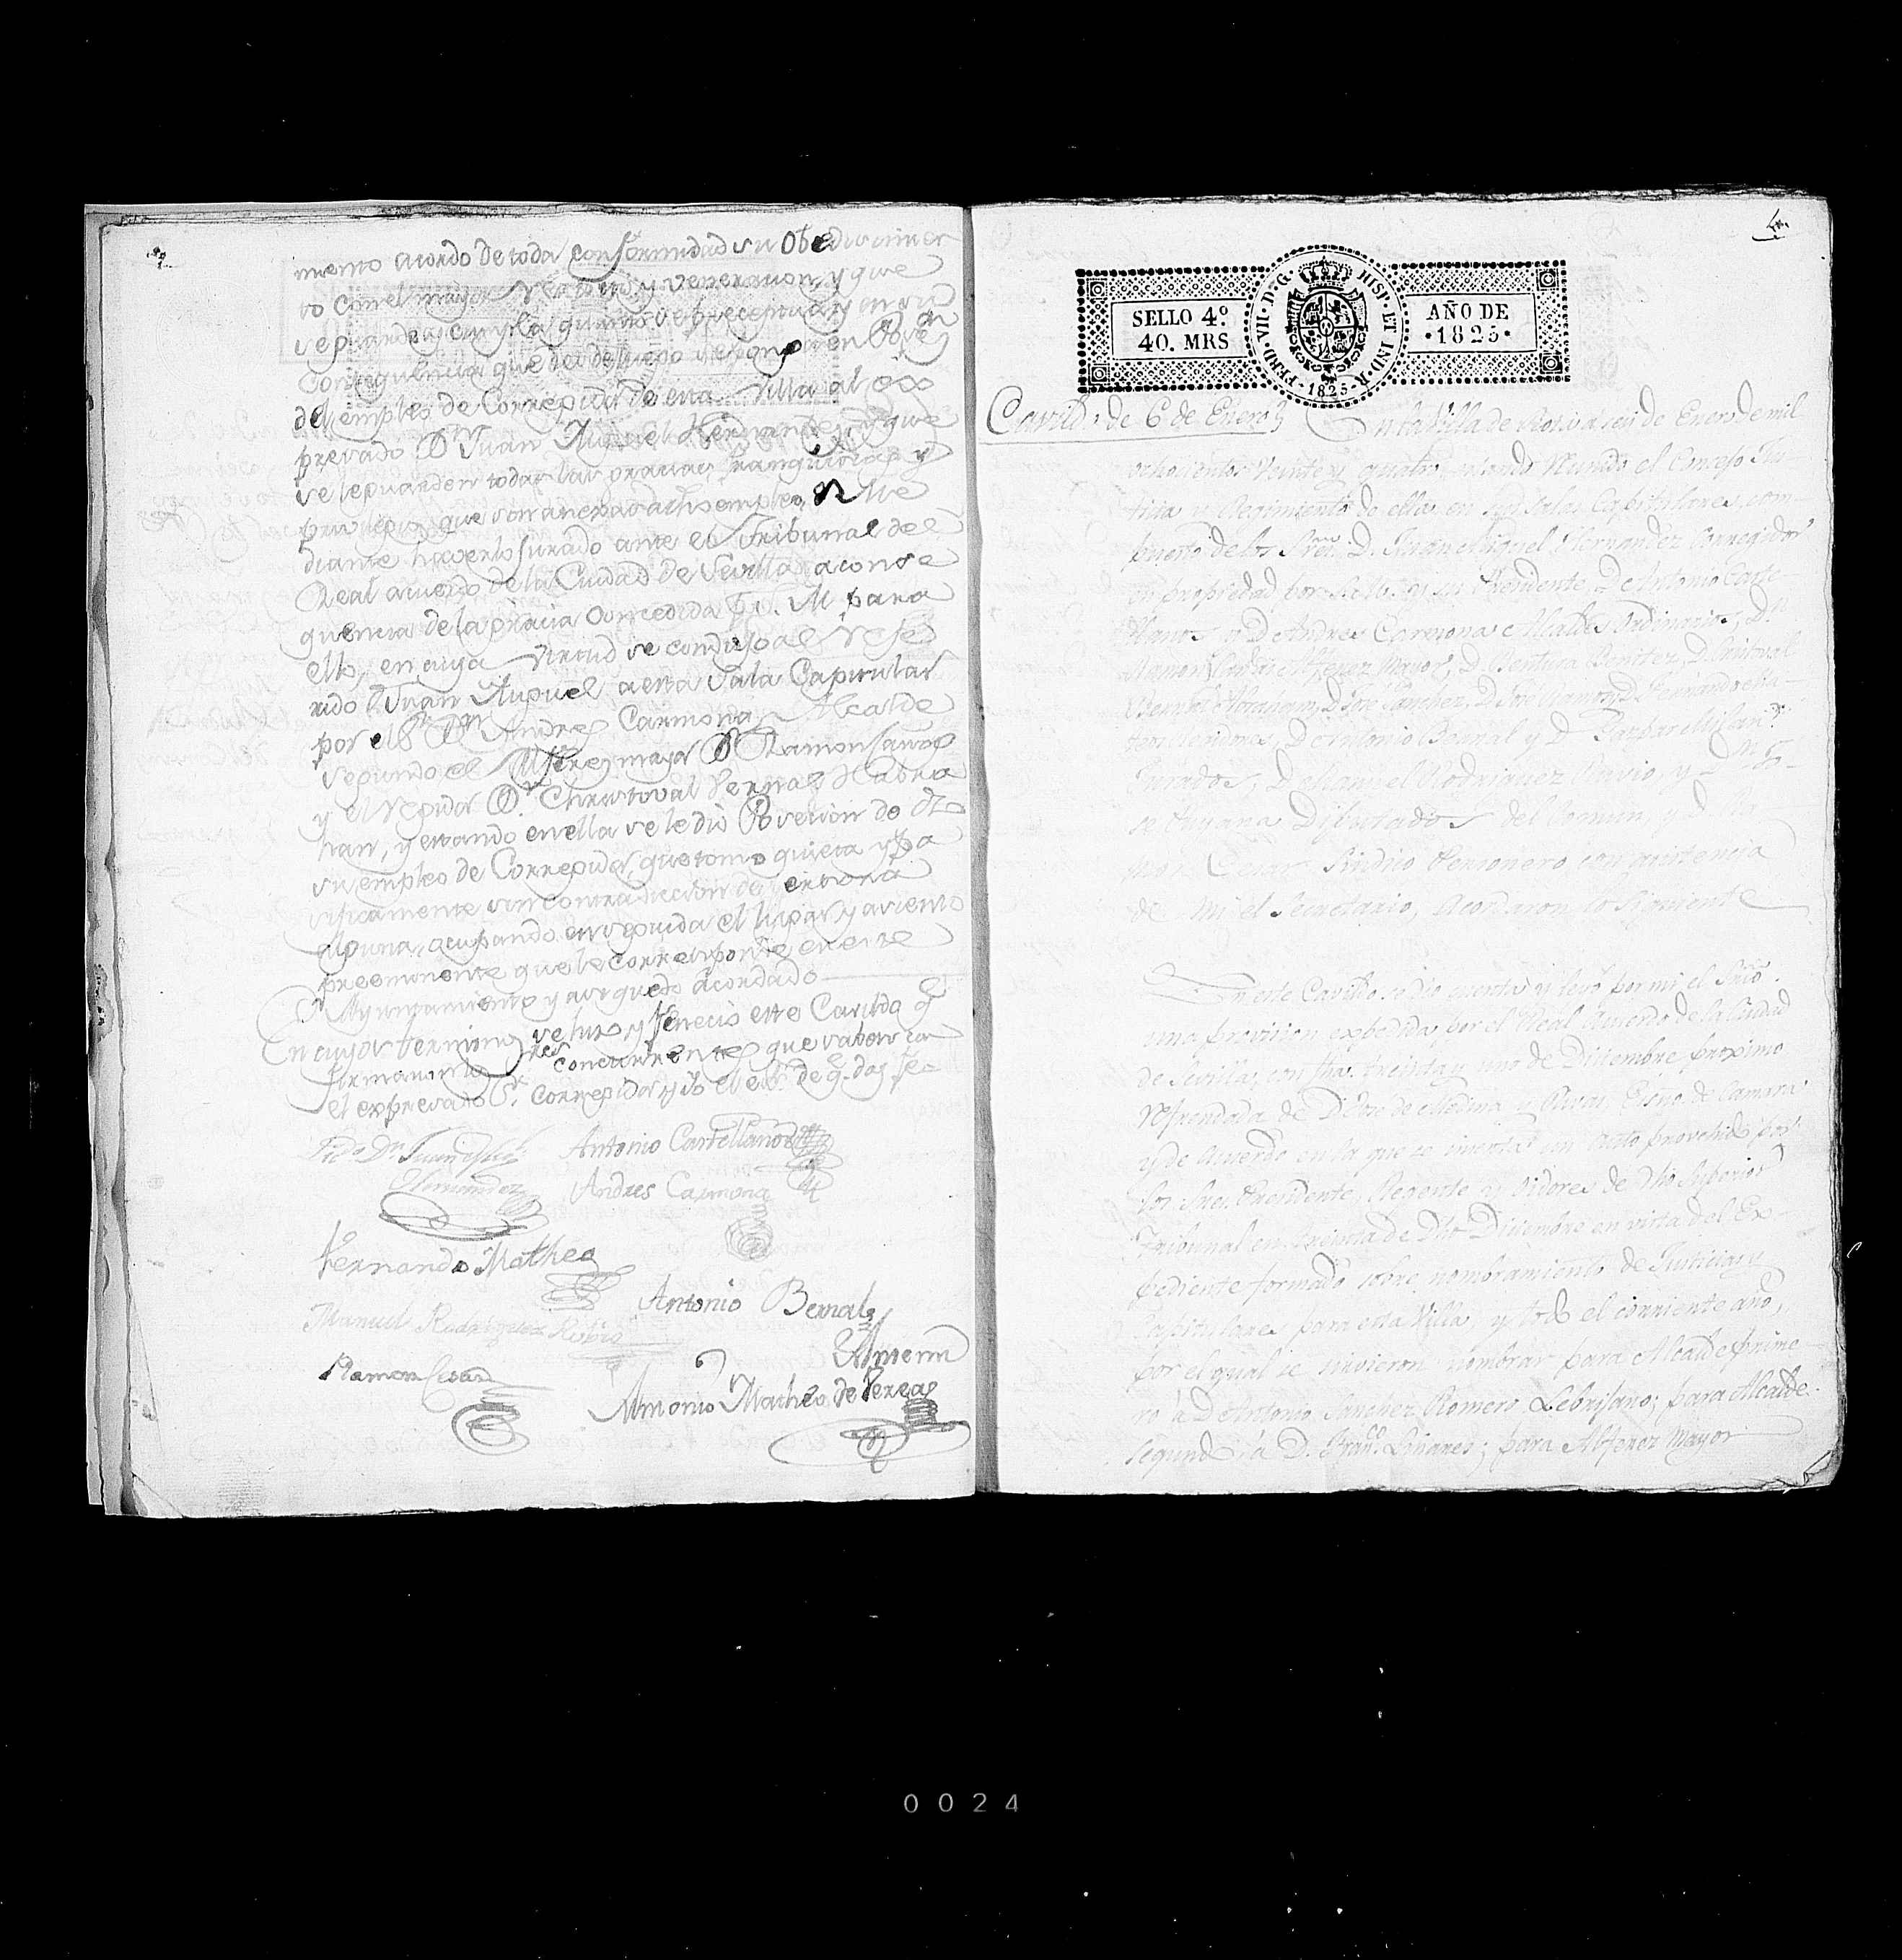 miento acordo de toda conformidad su Obedecimien
to con el mayor respeto y veneracion, y que
se guarde y cumpla quanto se preceptua, y en su
consequencia que desde luego se ponga en Posesn
del empleo de Corregidor de esta Villa al ex
presado Dn Juan Miguel Hernandez, y que
se le guarden todas las gracias, franquicias y
privilegios que son anexas a dho empleo, me
diante haverlo jurado ante el Tribunal del
Real acuerdo de la Ciudad de Sevilla a conse
quencia de la gracia concedida S. M. para
ello, en cuya virtud se condujo al refe
rido Dn Juan Miguel a esta Sala Capitular
por el Sr Dn Andres Carmona Alcalde
segundo el Alferez mayor Dn Ramon
y el regidor Dn Christoval Bernal Habra
han, y estando en ella se le dio Posecion de dho
su empleo de Corregidor, que tomo quieta y pa
cificamente sin contradiccion de persona
alguna, ocupando en seguida el lugar y aciento
preeminente que le corresponde en este
Ayuntamiento y asi quedo acordado
En cuyos terminos se hizo y fenecio este Cavildo q
firmaron los Sres concurrentes que saben con
el expresado Sr Corregidor y Yo el es.no de q. doy fe=
Lic.do Dn Juan Miguel Antonio Castellanos
Hernandez Andres Carmona
Fernando Matheo
Antonio Bernal
Manuel Rodriguez Rubio
Ramon Cesar
Antemi
Antonio Matheo de Pereas
4
SELLO 4º
40. MRS
FERD. VII. D. G. HISP. ET IND. R.
1825
AÑO DE
1825
Cavildo de 6 de Enero
En la Villa de a seis de Enero de mil
ochocientos Veinte y quatro, estando reunido el Concejo Jus-
ticia y Regimiento de ella en sus Salas Capitulares, com-
puesto de los Sres. D. Juan Miguel Hernandez Corregidor
en propiedad por S. M. y su Presidente, D. Antonio Caste-
llanos y D. Andres Carmona Alcaldes Ordinarios, D.n
Ramon Alferez Mayor, D. Ventura Benitez, D. Cristoval
Bernal Abraham, D. Jose Sanchez, D. Jose Ramos, D. Fernando Ma-
teo Regidores, D. Antonio Bernal y D.
Jurados, D. Manuel Rodriguez Rubio, y D.n
Diputados del Comun, y D. Ra-
mon Cesar Sindico Personero con asistencia
de mi el Secretario, Acordaron lo Siguiente
En este Cavildo se dio cuenta y leyo por mi el Srio.
una provision expedida por el Real Acuerdo de la Ciudad
de Sevilla, con fha. treinta y uno de Diciembre proximo
refrendada de D. de Medina y Esno. de Camara
y de Acuerdo en la que se inserta un auto provehido por
los Sres. Presidente, Regente y Oidores de dho Superior
Tribunal en treinta de dho Diciembre en vista del Ex-
pediente formado sobre nombramiento de Justicias y
Capitulares para esta Villa, y todo el corriente año,
por el qual se sirvieron nombrar para Alcalde prime-
ro a D. Antonio Sanchez Romero Lebrijano; para Alcalde
segundo a D. Franco. Linares; para Alferez Mayor
0024